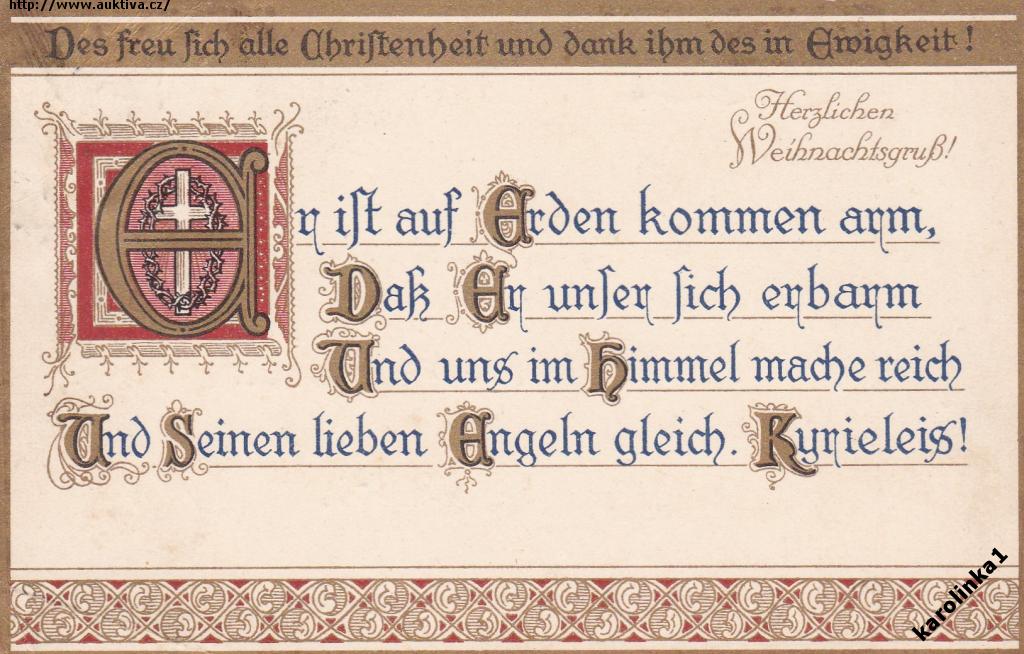 http://www.auktiva.cz/
Des freu sich alle Christenheit und dank ihm des in Ewigkeit!
Herzlichen
Weihnachtsgruß!
Er ist auf Erden kommen arm,
Daß Er unser sich erbarm
Und uns im Himmel mache reich
Und Seinen lieben Engeln gleich. Kyrieleis!
karolinka1